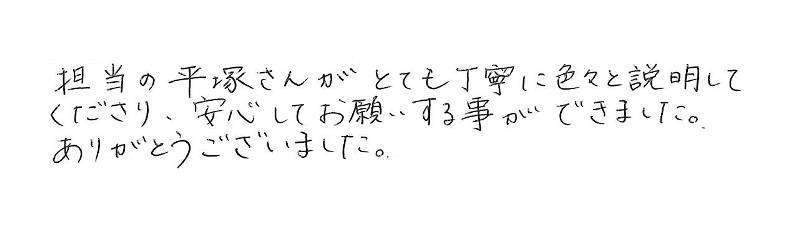 担当の平塚さんがとても丁寧に色々と説明して
くださり、安心してお願いする事ができました。
ありがとうございました。